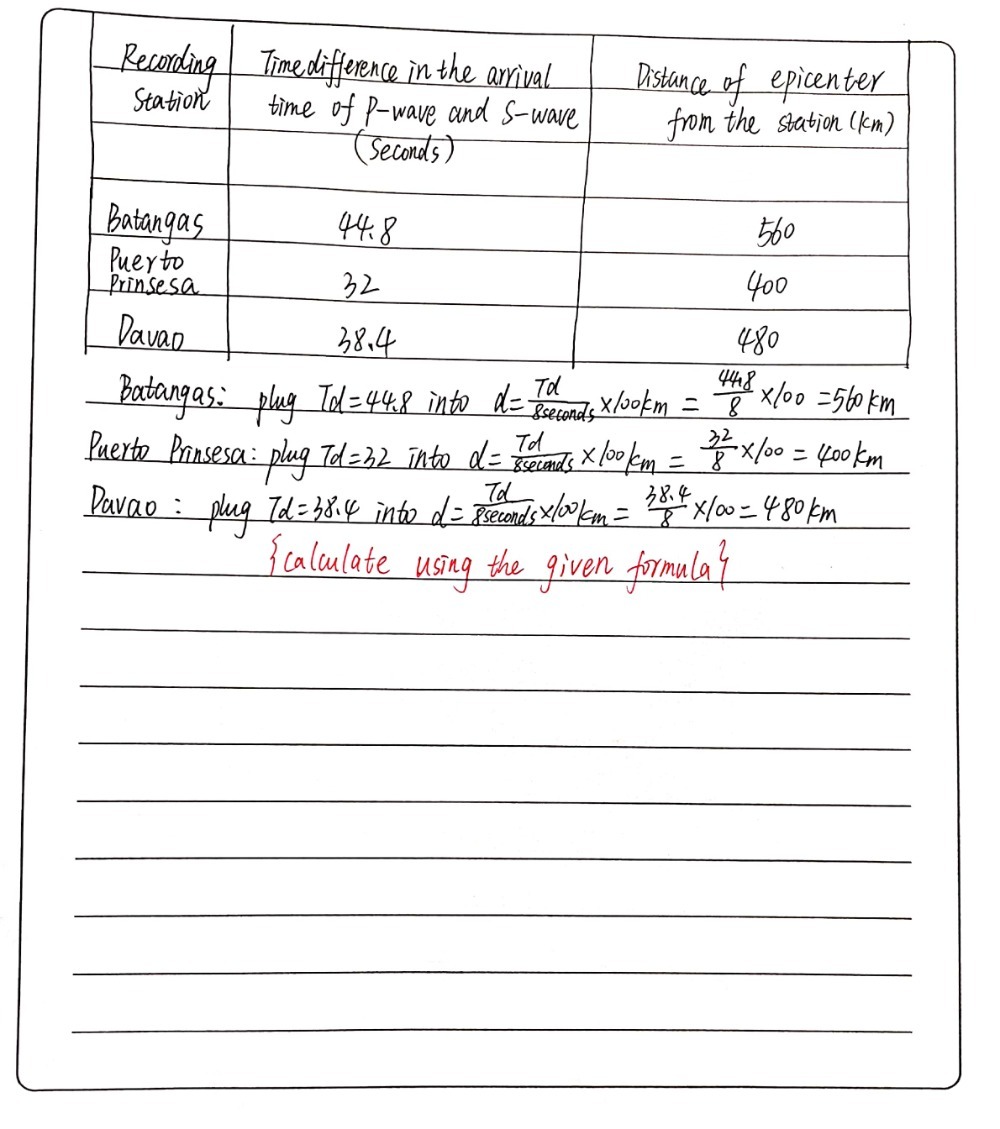 Recording Station | Time difference in the arrival time of P-wave and S-wave (Seconds) | Distance of epicenter from the station (km)
Batangas | 44.8 | 560
Puerto Prinsesa | 32 | 400
Davao | 38.4 | 480
Batangas: plug Td=44.8 into d=Td/8seconds×100km = 44.8/8×100=560km
Puerto Prinsesa: plug Td=32 into d=Td/8seconds×100km = 32/8×100=400km
Davao: plug Td=38.4 into d=Td/8seconds×100km = 38.4/8×100=480km
{calculate using the given formula}